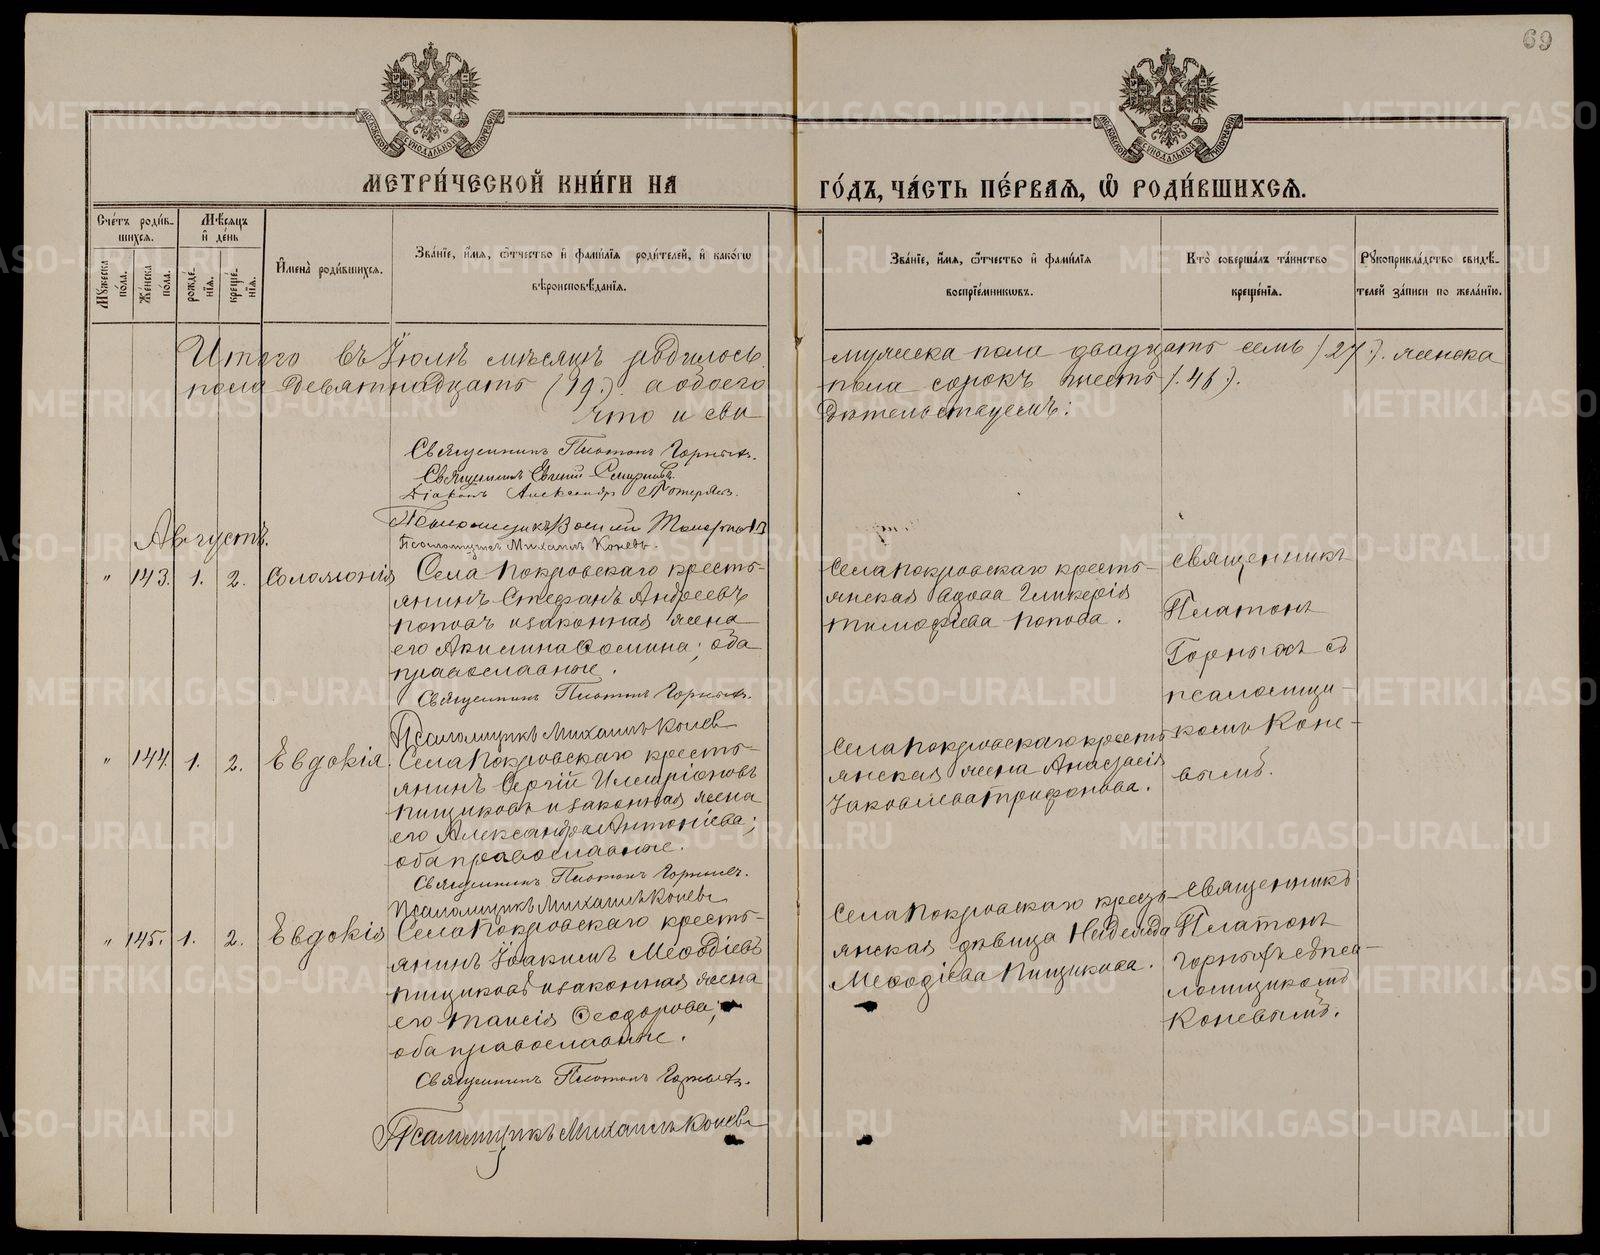 69
МЕТРИ́ЧЕСКОЙ КНИ́ГИ НА
ГО́ДЪ, ЧА́СТЬ ПЕ́РВАѦ, Ѡ РОДИ́ВШИХСѦ.
Сче́тъ роди́в-
шихсѧ.
Мѣ́сѧцъ
и҆ де́нь
Му́жеска
по́ла.
Же́нска
по́ла.
рожде́-
нїѧ.
креще́-
нїѧ.
И҆мена̀ роди́вшихсѧ.
Зва́нїе, и҆́мѧ, ѻ҆́тчество и҆ фами́лїѧ роди́телей, и҆ како́гѡ
вѣроисповѣ́данїѧ.
Зва́нїе, и҆́мѧ, ѻ҆́тчество и҆ фами́лїѧ
воспрїе́мникѡвъ.
Кто̀ соверша́лъ та́инство
креще́нїѧ.
Рꙋкоприкла́дство свидѣ́-
телей за́писи по жела́нїю.
Итого въ Іюлѣ мѣсяцѣ родилось мужеска пола двадцать семь (27). женска
пола девятнадцать (19). а обоего пола сорокъ шесть (46).
что и сви дѣтельствуемъ:
Священникъ Платонъ Горныхъ.
Священникъ Евгений Смирновъ
Діаконъ Александръ
Псаломщикъ
Псаломщикъ Михаилъ Коневъ.
Августъ.
" 143. 1. 2. Соломонія
Села Покровскаго кресть-
янинъ Стефанъ Андреевъ
Поповъ и законная жена
его Акилина Ѳомина; оба
православные.
Священникъ Платонъ Горныхъ.
Псаломщикъ Михаилъ Конев
Села Покровскаго кресть-
янская вдова Гликерія
Тимофіева Попова.
Священникъ
Платонъ
Горныхъ съ
псаломщи-
комъ Коне-
вымъ.
" 144. 1. 2. Евдокія.
Села Покровскаго кресть-
янинъ Сергій Иларіоновъ
Пищиковъ и законная жена
его Александра Антоніева;
оба православные.
Священникъ Платонъ Горныхъ.
Псаломщикъ Михаилъ Коневъ
Села Покровскаго кресть
янская жена Анастасія
Іаковлева Трифонова.
" 145. 1. 2. Евдокія
Села Покровскаго кресть-
янинъ Іоакимъ Меѳодіевъ
Пищиковъ и законная жена
его Таисія Ѳеодорова;
оба православные.
Священникъ Платонъ Горныхъ.
Псаломщикъ Михаилъ Коневъ
Села Покровскаго кресть-
янская дѣвица Надежда
Меѳодіева Пищикова.
Священникъ
Платонъ
Горныхъ съ пса-
ломщикомъ
Коневымъ.
METRIKI.GASO-URAL.RU